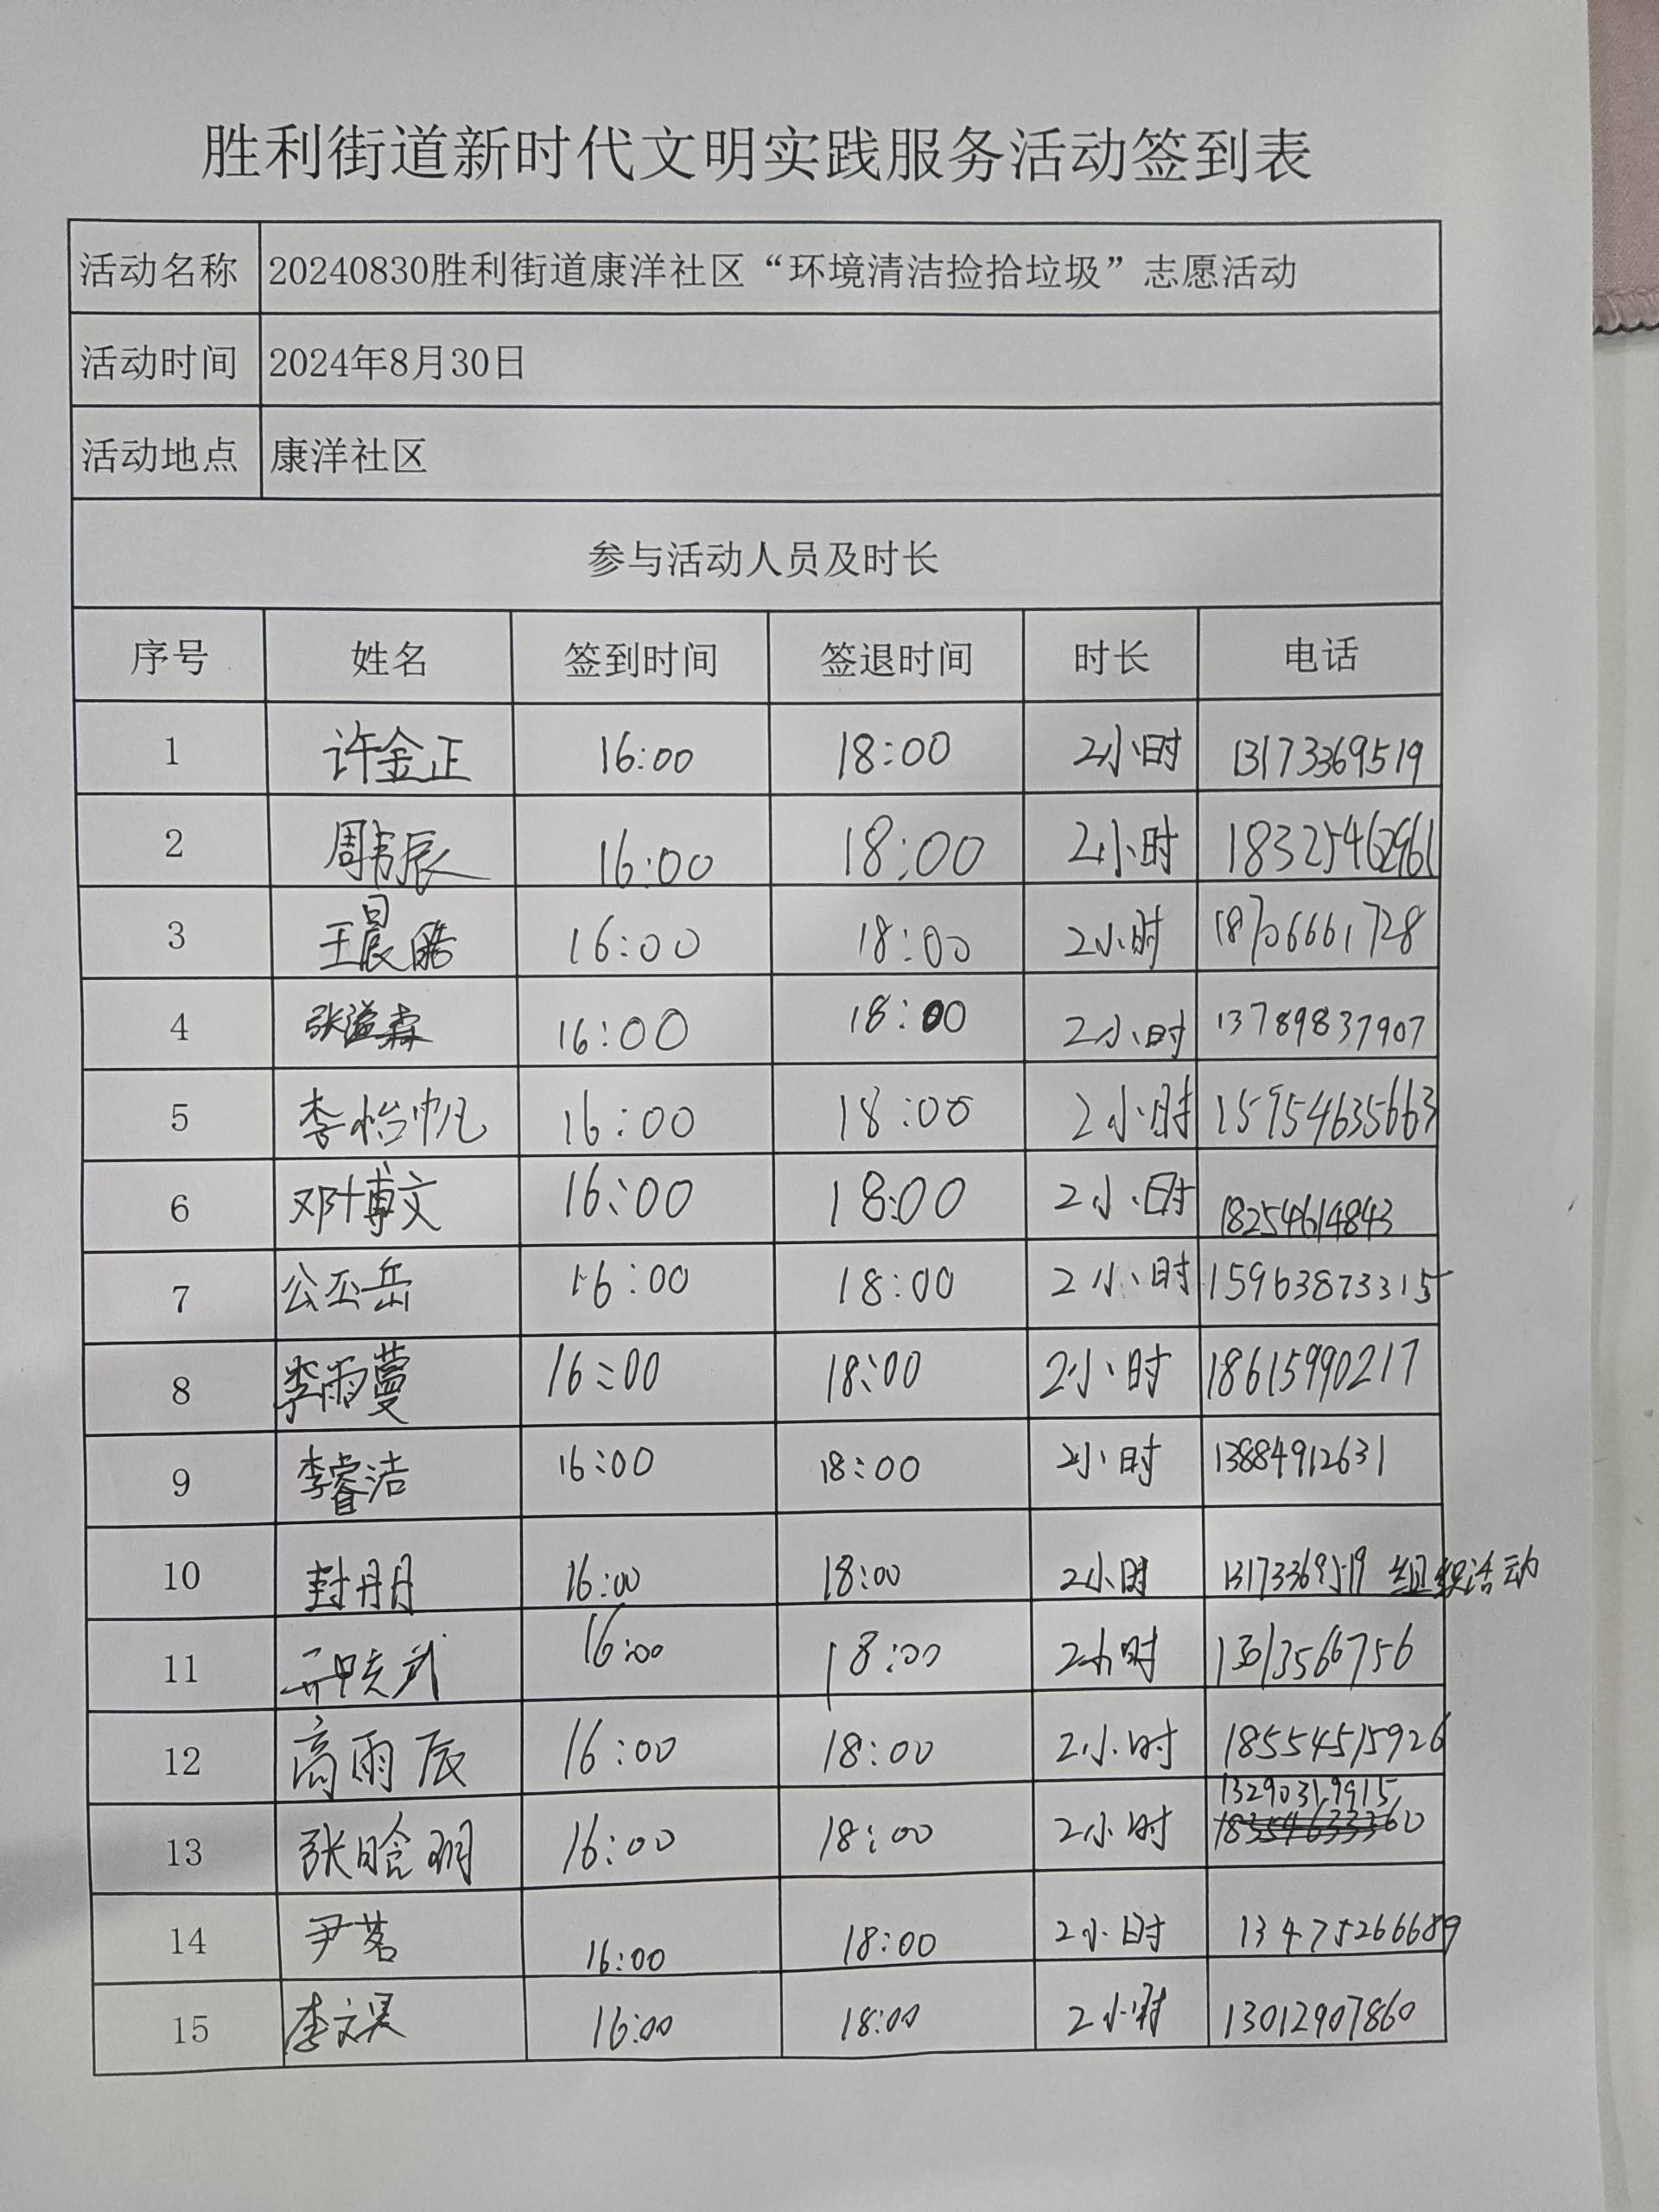 胜利街道新时代文明实践服务活动签到表
活动名称 20240830胜利街道康洋社区“环境清洁捡拾垃圾”志愿活动
活动时间 2024年8月30日
活动地点 康洋社区
参与活动人员及时长
序号 姓名 签到时间 签退时间 时长 电话
1 许金正 16:00 18:00 2小时 13173369519
2 16:00 18:00 2小时 18325462961
3 16:00 18:00 2小时 18706661728
4 张溢森 16:00 18:00 2小时 13789837907
5 李怡帆 16:00 18:00 2小时 15954635663
6 邓博文 16:00 18:00 2小时 18254614843
7 公丕岳 16:00 18:00 2小时 15963873315
8 李雨蔓 16:00 18:00 2小时 18615990217
9 李睿洁 16:00 18:00 2小时 13884912631
10 封丹丹 16:00 18:00 2小时 13173369519 组织活动
11 16:00 18:00 2小时
12 高雨辰 16:00 18:00 2小时 18554515926
13290319915
13 张晗玥 16:00 18:00 2小时
14 尹茗 16:00 18:00 2小时 13475266689
15 李文昊 16:00 18:00 2小时 13012907860